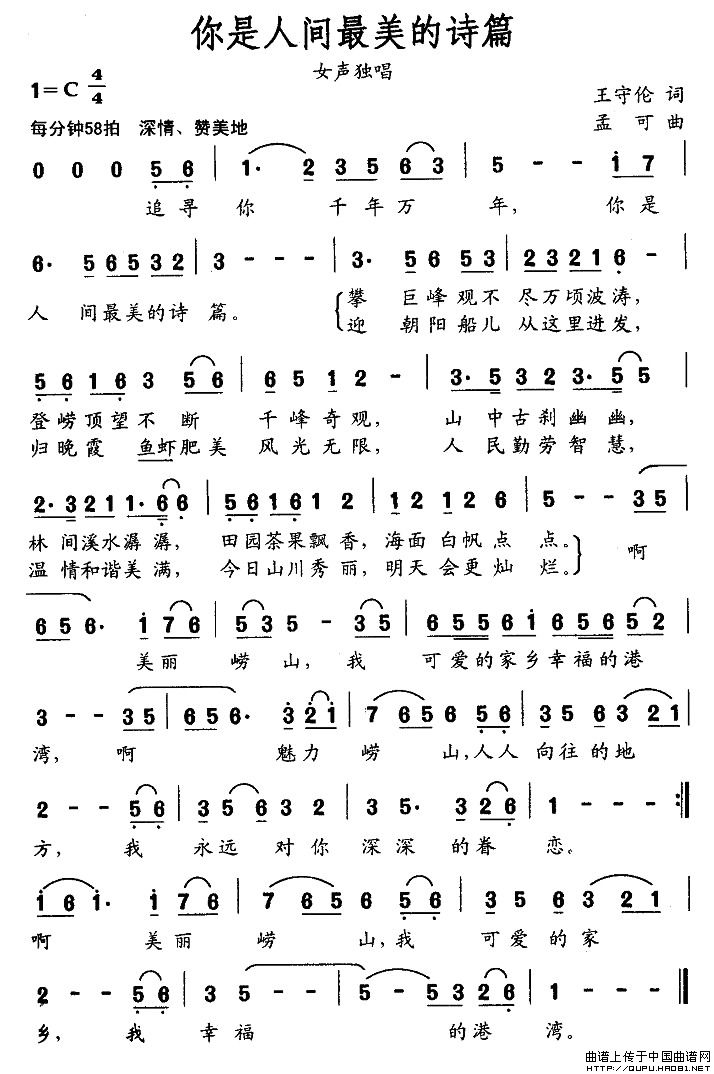 你是人间最美的诗篇
女声独唱
1=C 4/4
王守伦 词
每分钟58拍 深情、赞美地
孟可曲
0 0 0 5 6 | 1· 2 3 5 6 3 | 5 - - 1 7 |
追寻 你 千年万 年, 你是
6· 5 6 5 3 2 | 3 - - - | 3· 5 6 5 3 | 2 3 2 1 6 - |
人 间最美的诗 篇。 攀 巨峰观不 尽万顷波涛,
迎 朝阳船儿 从这里进发,
5 6 1 6 3 5 6 | 6 5 1 2 - | 3· 5 3 2 3· 5 5 |
登崂顶望不断 千峰奇观, 山 中古刹幽幽,
归晚霞 鱼虾肥美 风光无限, 人 民勤劳智慧,
2· 3 2 1 1· 6 6 | 5 6 1 6 1 2 | 1 2 1 2 6 1 | 5 - - 3 5 |
林 间溪水潺潺, 田园茶果飘香, 海面白帆点 点。 啊
温 情和谐美满, 今日山川秀丽, 明天会更灿 烂。
6 5 6· 1 7 6 | 5 3 5 - 3 5 | 6 5 5 6 1 6 5 6 5 2 |
美丽 崂山, 我 可爱的家乡幸福的港
3 - - 3 5 | 6 5 6· 3 2 1 | 7 6 5 6 5 6 | 3 5 6 3 2 1 |
湾, 啊 魅力 崂 山,人人 向往的地
2 - - 5 6 | 3 5 6 3 2 | 3 5· 3 2 6 | 1 - - - :|
方, 我 永远 对你 深深 的眷 恋。
1 6 1· 1 7 6 | 7 6 5 6 5 6 | 3 5 6 3 2 1 |
啊 美丽 崂 山,我 可爱的家
2 - - 5 6 | 3 5 - - | 5 - 5 3 2 6 | 1 - - - ‖
乡, 我 幸福 的港 湾。
曲谱上传于中国曲谱网
HTTP://QUPU.HAO81.NET